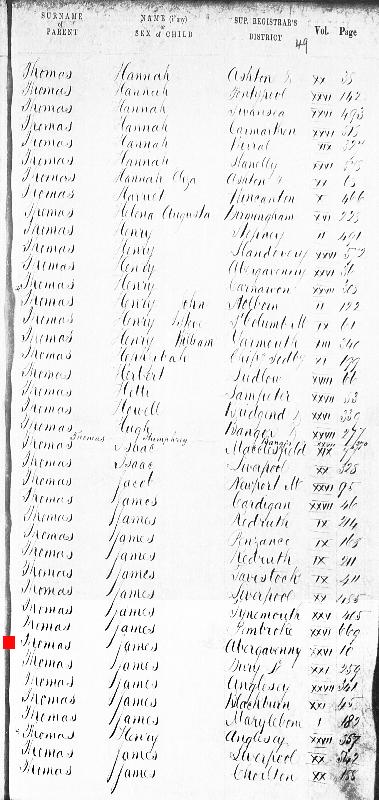 SURNAME of PARENT NAME (if any) or SEX of CHILD SUP. REGISTRAR'S DISTRICT Vol. Page
49
Thomas Hannah Ashton XX 35
Thomas Hannah Pontypool XXVI 142
Thomas Hannah Swansea XXVI 493
Thomas Hannah Carmarthen XXVI 513
Thomas Hannah Wirral XIX
Thomas Hannah Llanelly XXVI
Thomas Hannah Eliza Ashton XX 65
Thomas Harriet Wincanton X 466
Thomas Helena Augusta Birmingham XVI 223
Thomas Henry Stepney II 491
Thomas Henry Llandovery XXVI
Thomas Henry Abergavenny XXVI 36
Thomas Henry Carnarvon XXVII 303
Thomas Henry John Holborn II 122
Thomas Henry St Columb M IX 61
Thomas Henry William Yarmouth XIII 360
Thomas Chip. Sodby XI 179
Thomas Herbert Ludlow XVIII 66
Thomas Hetti Lampeter XXVII 33
Thomas Howell XI 330
Thomas Hugh Bangor XXVII 277
Thomas Humphrey Bangor XXVII
Thomas Isaac Macclesfield XIX
Thomas Isaac Liverpool XX 325
Thomas Jacob Newport M XXVI 95
Thomas James Cardigan XXVII 46
Thomas James Redruth IX 214
Thomas James Penzance IX 168
Thomas James Redruth IX 211
Thomas James Tavistock IX 411
Thomas James Liverpool XX
Thomas James Tynemouth XXV 405
Thomas James Pembroke XXVI 669
Thomas James Abergavenny XXVI 16
Thomas James Bury XXI 359
Thomas James Anglesey XXVII 341
Thomas James Blackburn XXI 45
Thomas James Marylebone I 182
Thomas Henry Anglesey XXVII 357
Thomas James Liverpool XX 342
Thomas James Chorlton XX 155